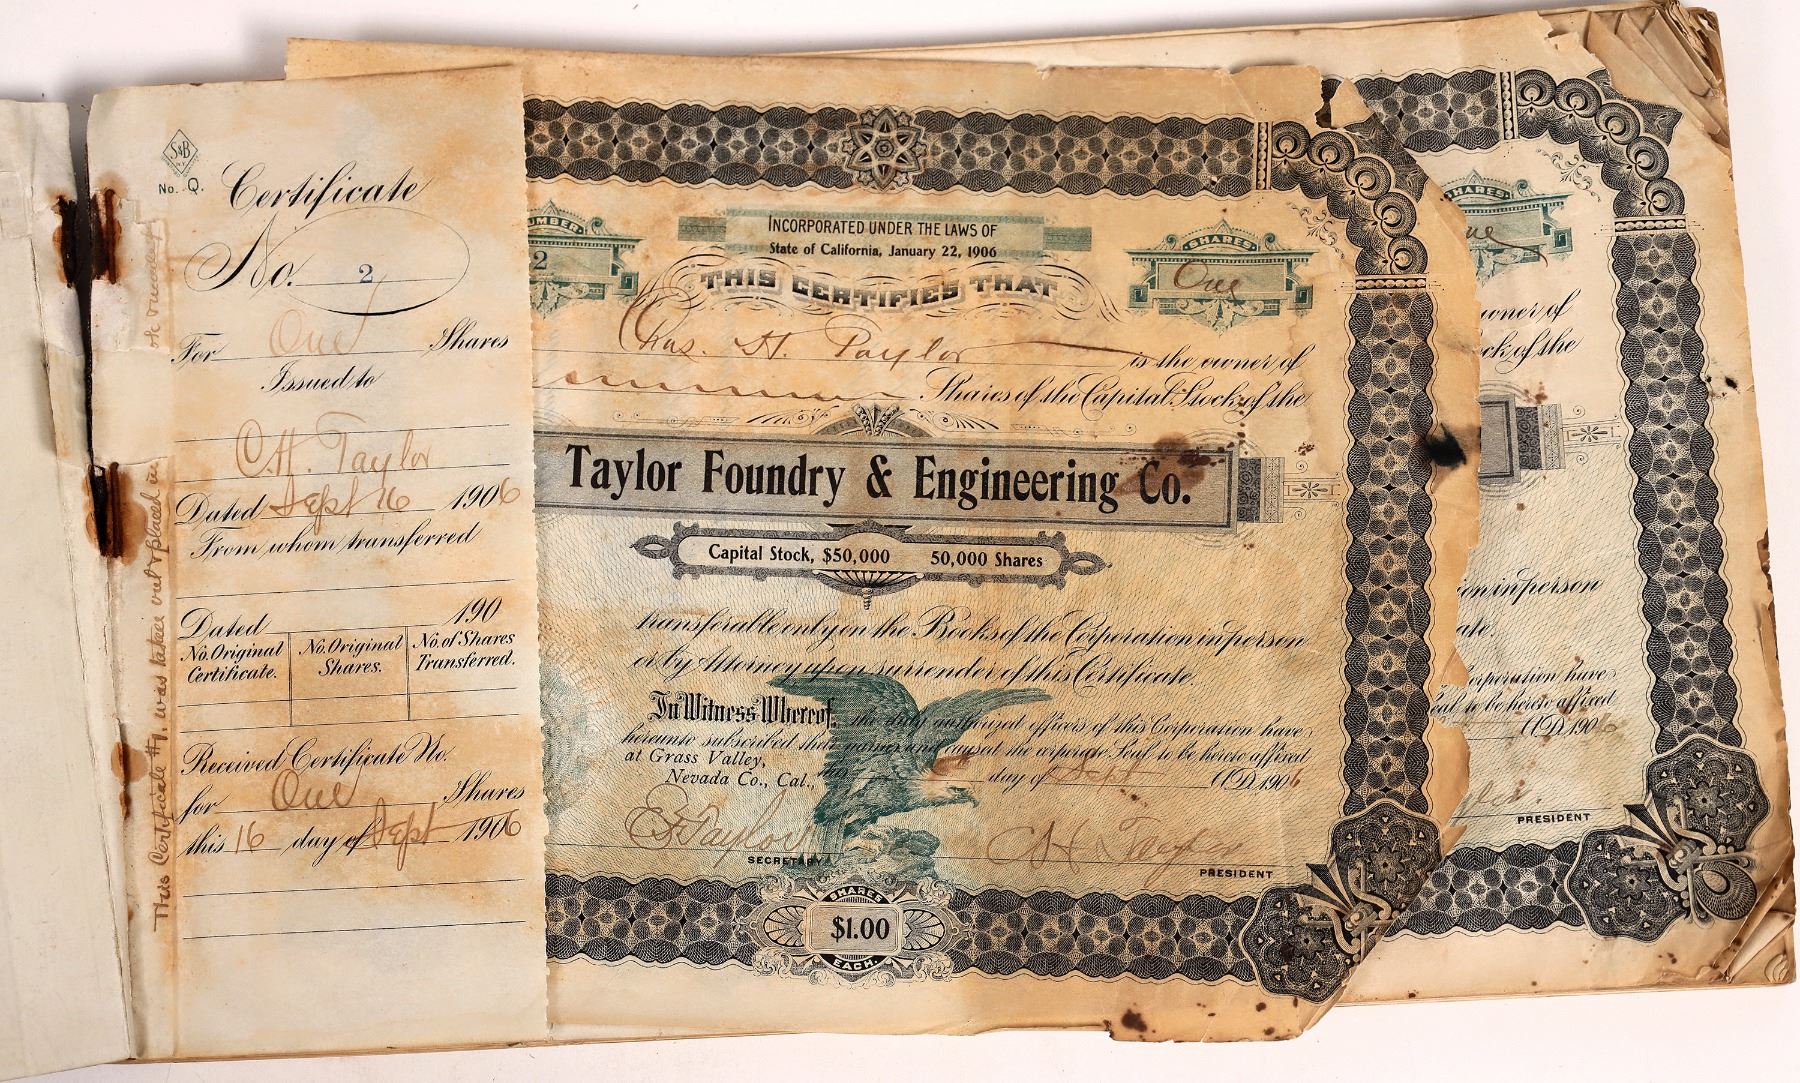 S&B
No. Q.
Certificate
No. 2
For One Shares
Issued to
C.H. Taylor
Dated Sept 16 1906
From whom transferred
Dated 190
No. Original Certificate. No. Original Shares. No. of Shares Transferred.
Received Certificate No.
for One Shares
this 16 day of Sept 1906
This Certificate #1. was taken out & placed in
NUMBER
2
INCORPORATED UNDER THE LAWS OF
State of California, January 22, 1906
SHARES
One
THIS CERTIFIES THAT
Chas. H. Taylor is the owner of
Shares of the Capital Stock of the
Taylor Foundry & Engineering Co.
Capital Stock, $50,000 50,000 Shares
transferable only on the Books of the Corporation in person
or by Attorney upon surrender of this Certificate.
In Witness Whereof, the duly authorized officers of this Corporation have
hereunto subscribed their names and caused the corporate Seal to be hereto affixed
at Grass Valley,
Nevada Co., Cal., this day of Sept A.D. 1906
E F Taylor
SECRETARY
C H Taylor
PRESIDENT
SHARES
$1.00
EACH.
SHARES
One
owner of
ck of the
ion in person
ate.
orporation have
eal to be hereto affixed
A.D. 1906
PRESIDENT